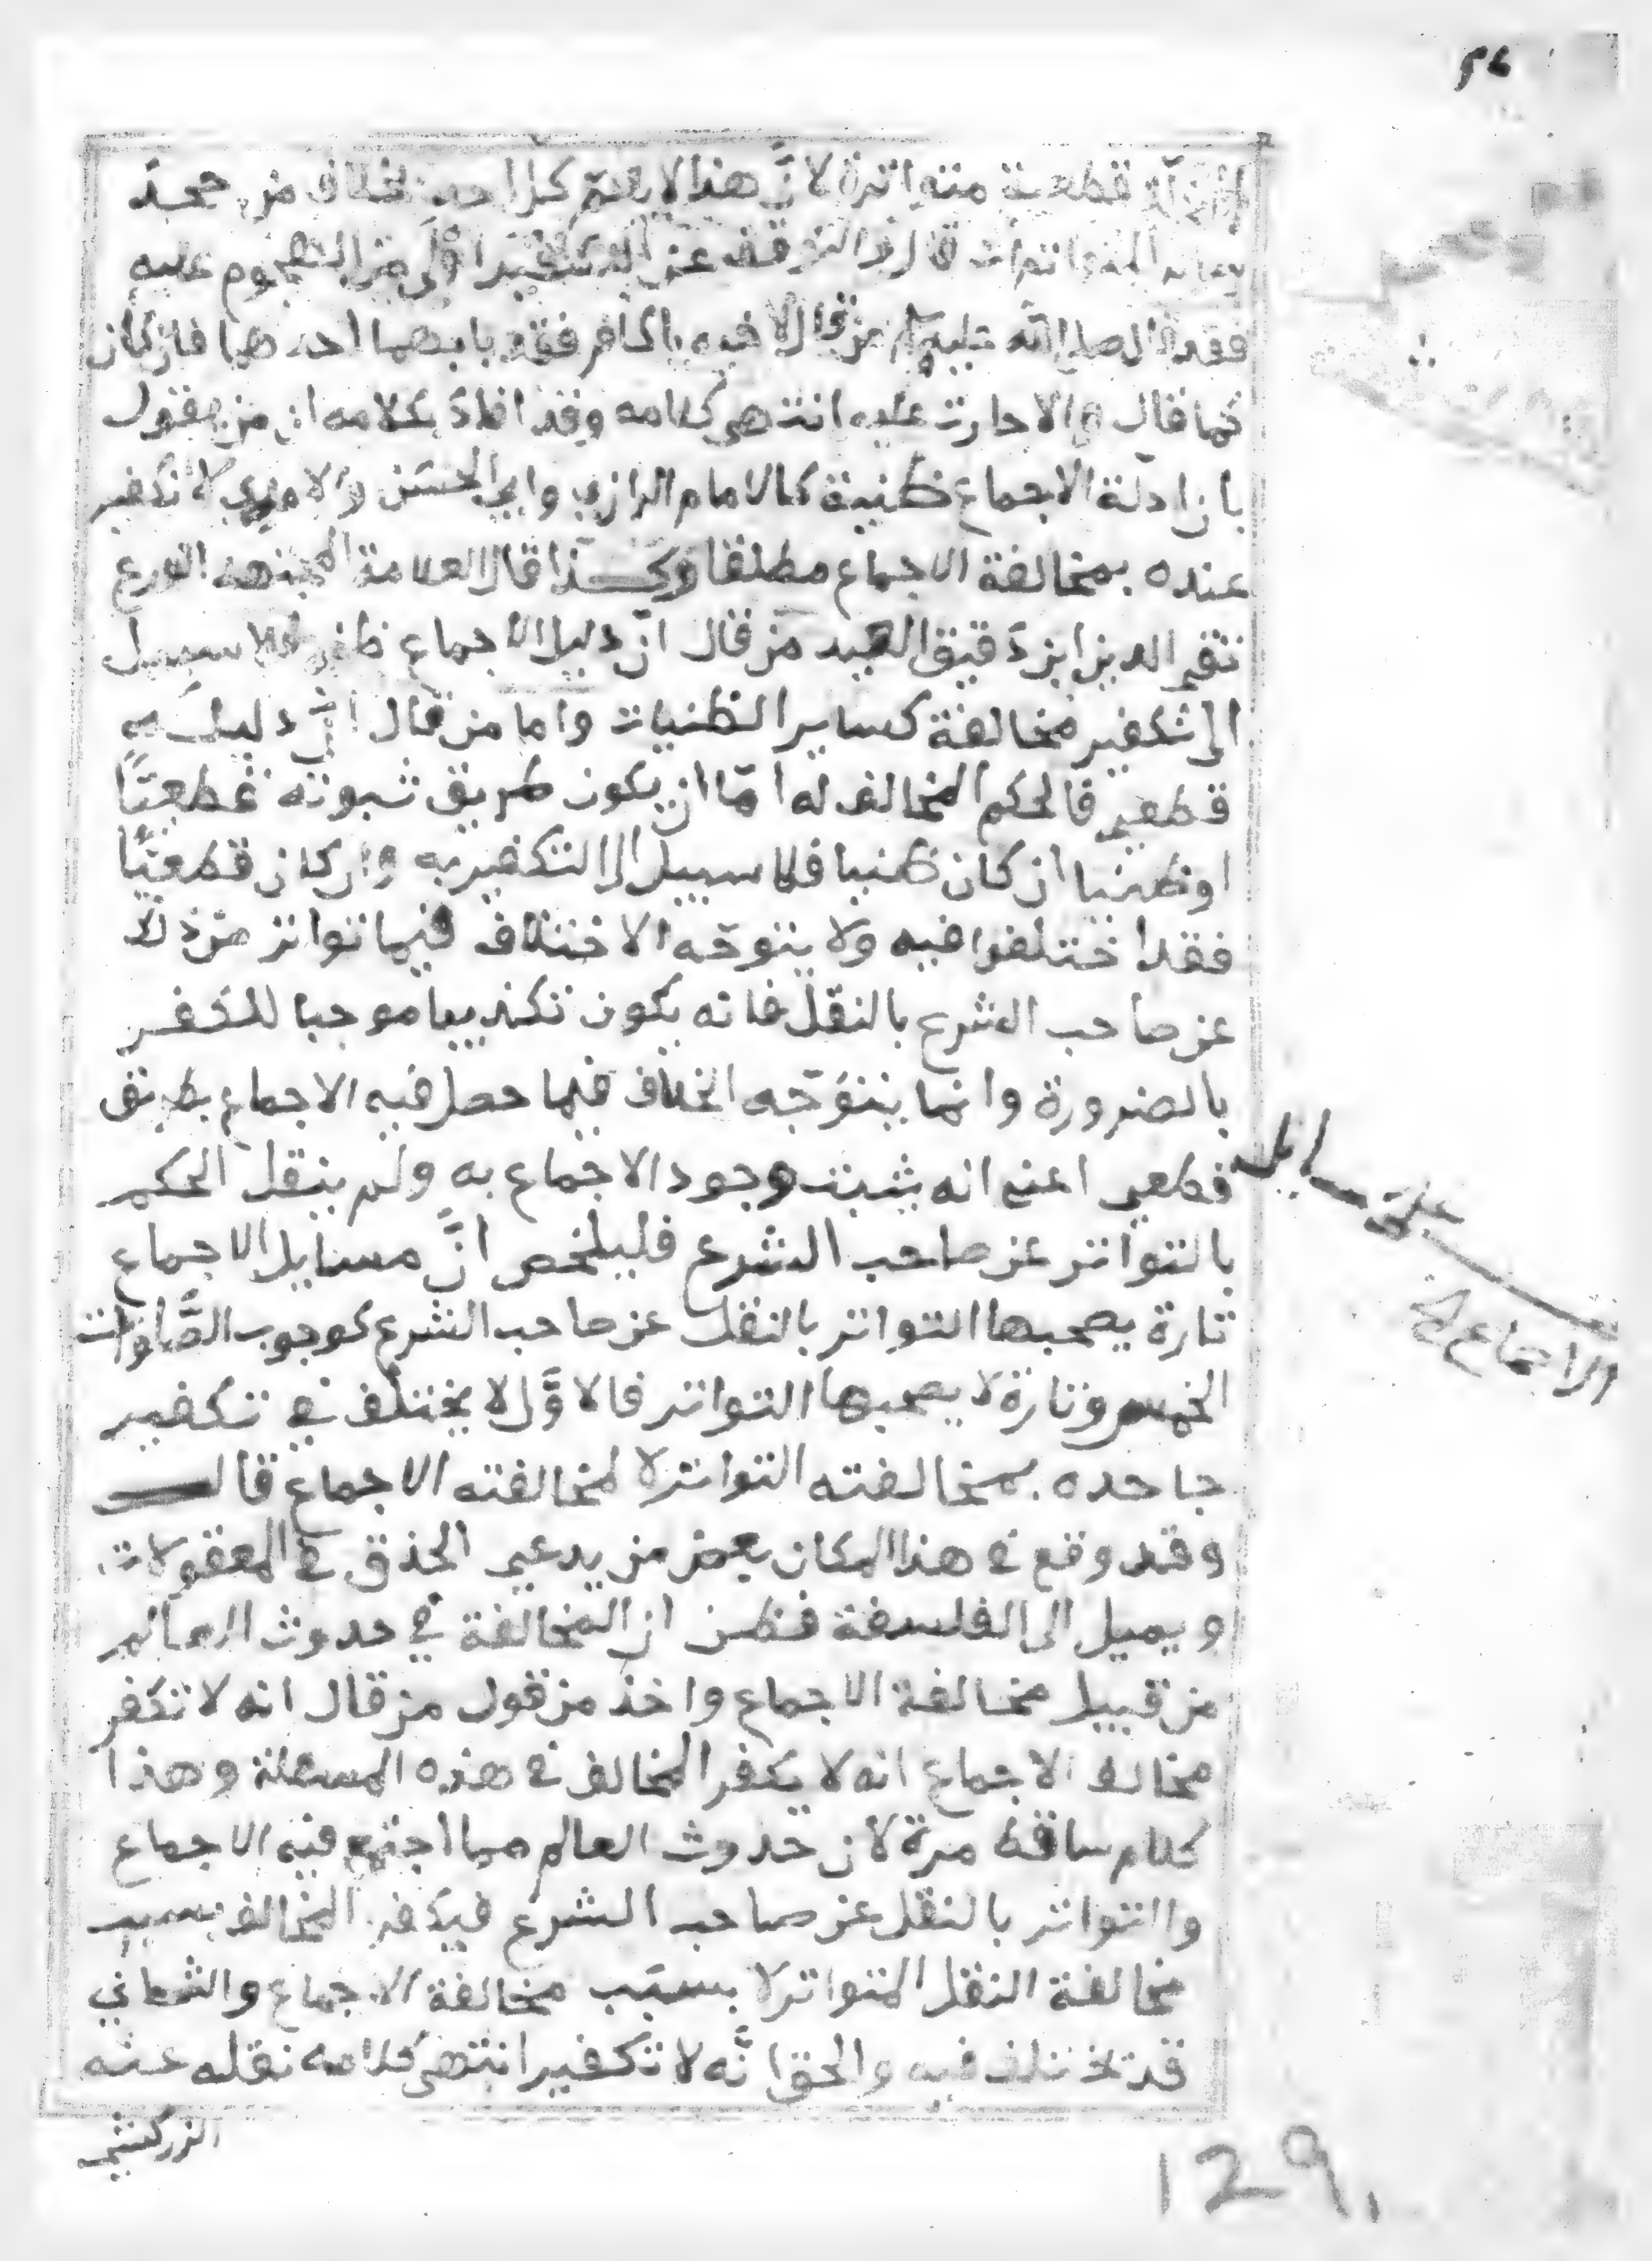 قطعية متواترة لانّ هذا لا يعمّ كل احد بخلاف من جحد
المتواترات قال فالتوقف عن التكفير اولى من الهجوم عليه
فقد قال صلى الله عليه من قال لاخيه يا كافر فقد با بهما احدهما فان كان
كما قال والا حارت عليه انتهى كلامه وقد افاد بكلامه ان من يقول
بان ادلّة الاجماع ظنية كالامام الرازي وابي الحسن والامدي لا تكفير
عنده بمخالفة الاجماع مطلقا وكذا قال العلامة المجتهد الورع
تقي الدين ابن دقيق العيد من قال انّ دليل الاجماع ظني فلا سبيل
الى تكفير مخالفة كساير الظنيات واما من قال انّ دليله
قطعي فالحكم المخالف له امّا ان يكون طريق ثبوته قطعيّاً
او ظنيا ان كان ظنيا فلا سبيل الى التكفير به وان كان قطعيّاً
فقد اختلفوا فيه ولا يتوجّه الاختلاف فيما تواتر من ذلك
عن صاحب الشرع بالنقل فانه يكون تكذيبا موجبا للكفر
بالضرورة وانما يتوَجّه الخلاف فيما حصل فيه الاجماع بطريق
قطعي اعني انه يثبت وجود الاجماع به ولم ينقل الحكم
بالتواتر عن صاحب الشرع فليلخص انَّ مسايل الاجماع
تارة يصحبها التواتر بالنقل عن صاحب الشرع كوجوب الصَّلوات
الخمس وتارة لا يصحبها التواتر فالاوَّل لا يختلف في تكفير
جاحده بمخالفته التواتر لا لمخالفته الاجماع قال
وقد وقع في هذا المكان بعض من يدعي الحذق في المعقولات
ويميل الى الفلسفة فظن ان المخالفة في حدوث العالم
من قبيل مخالفة الاجماع واخذ من قول من قال انه لا تكفر
مخالف الاجماع انه لا يكفر المخالف في هذه المسئلة وهذا
كلام ساقط مرة لان حدوث العالم مما اجتمع فيه الاجماع
والتواتر بالنقل عن صاحب الشرع فيكفر المخالف بسبب
مخالفة النقل المتواتر لا بسبَب مخالفة الاجماع والثاني
قد تختلف فيه والحق انَّه لا تكفير انتهى كلامه نقله عنه
الزركشي
على مسايل
الاجماع
129